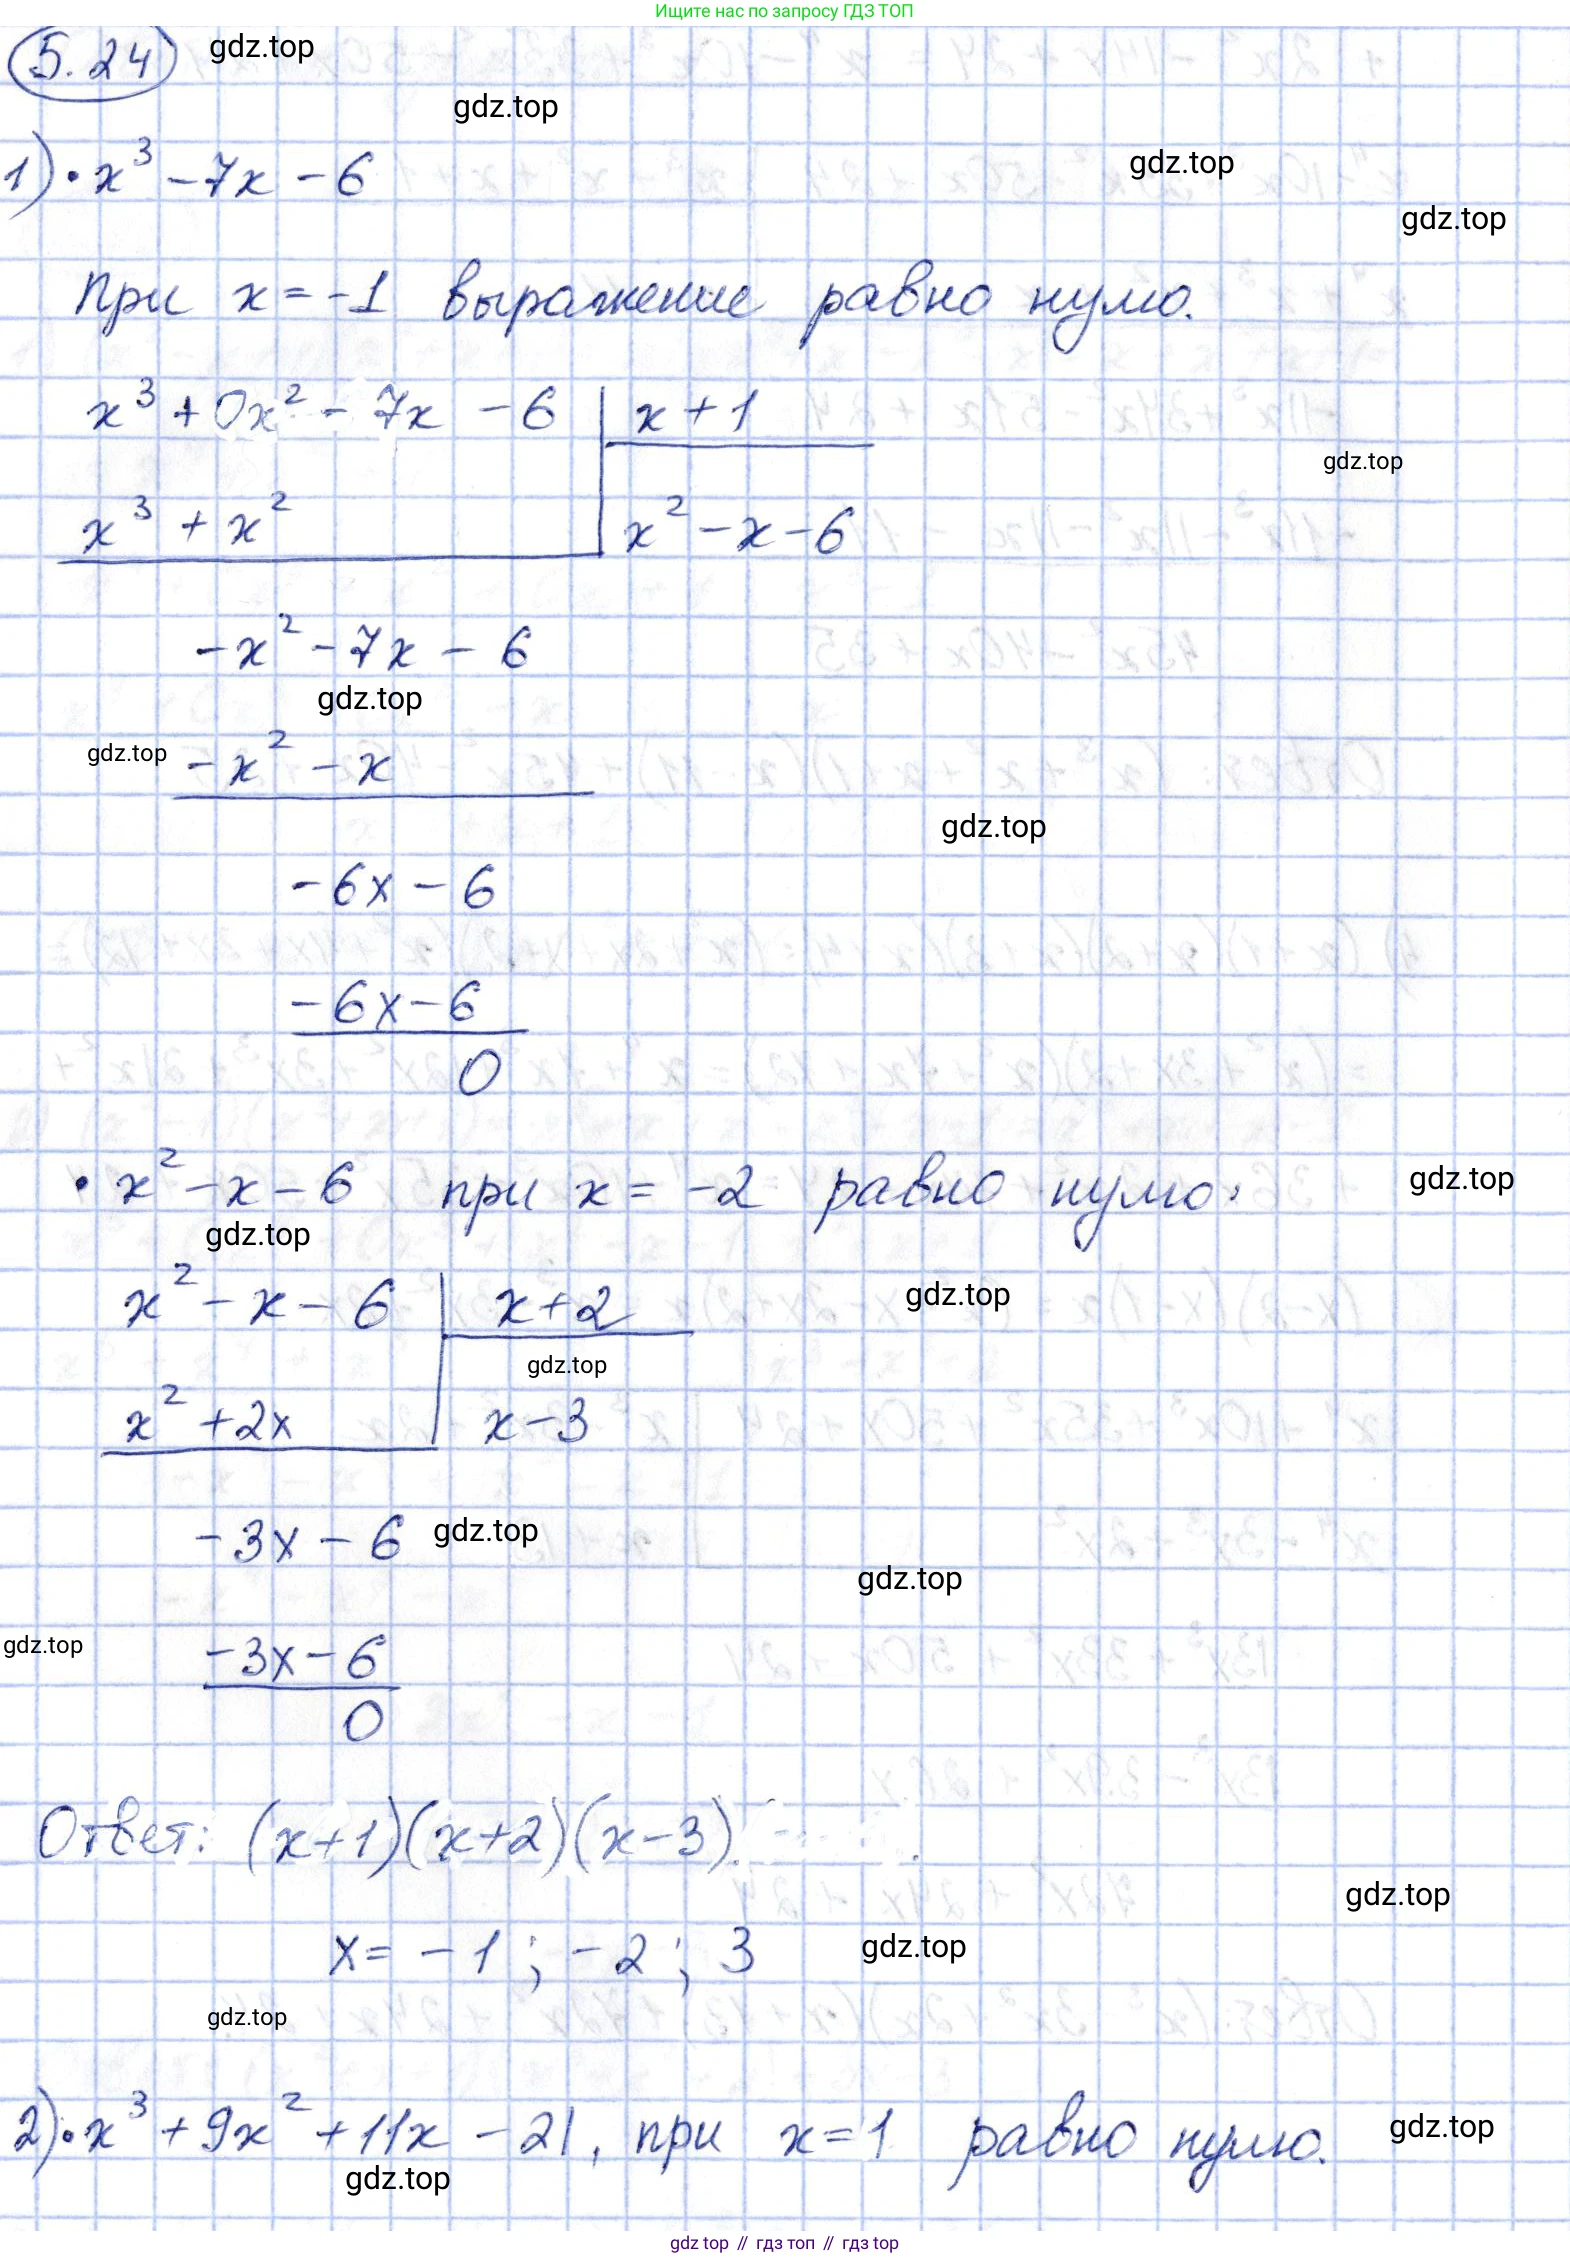 Ищите нас по запросу ГДЗ ТОП
5.24 gdz.top
gdz.top
1) • x³ - 7x - 6 gdz.top
gdz.top
При x = -1 выражение равно нулю.
x³ + 0x² - 7x - 6 | x + 1
gdz.top
x³ + x² | x² - x - 6
-x² - 7x - 6
gdz.top
gdz.top -x² - x
gdz.top
-6x - 6
-6x - 6
0
• x² - x - 6 при x = -2 равно нулю: gdz.top
gdz.top
x² - x - 6 | x + 2 gdz.top
gdz.top
x² + 2x | x - 3
-3x - 6 gdz.top
gdz.top
gdz.top -3x - 6
0
Ответ: (x+1)(x+2)(x-3).
gdz.top
x = -1 ; -2 ; 3 gdz.top
gdz.top
2) • x³ + 9x² + 11x - 21, при x = 1 равно нулю. gdz.top
gdz.top
gdz top // гдз топ // гдз top